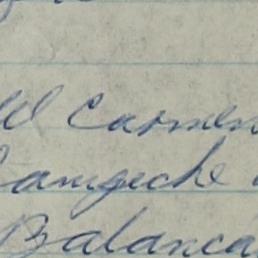 el Carmen
Campeche
Balancán